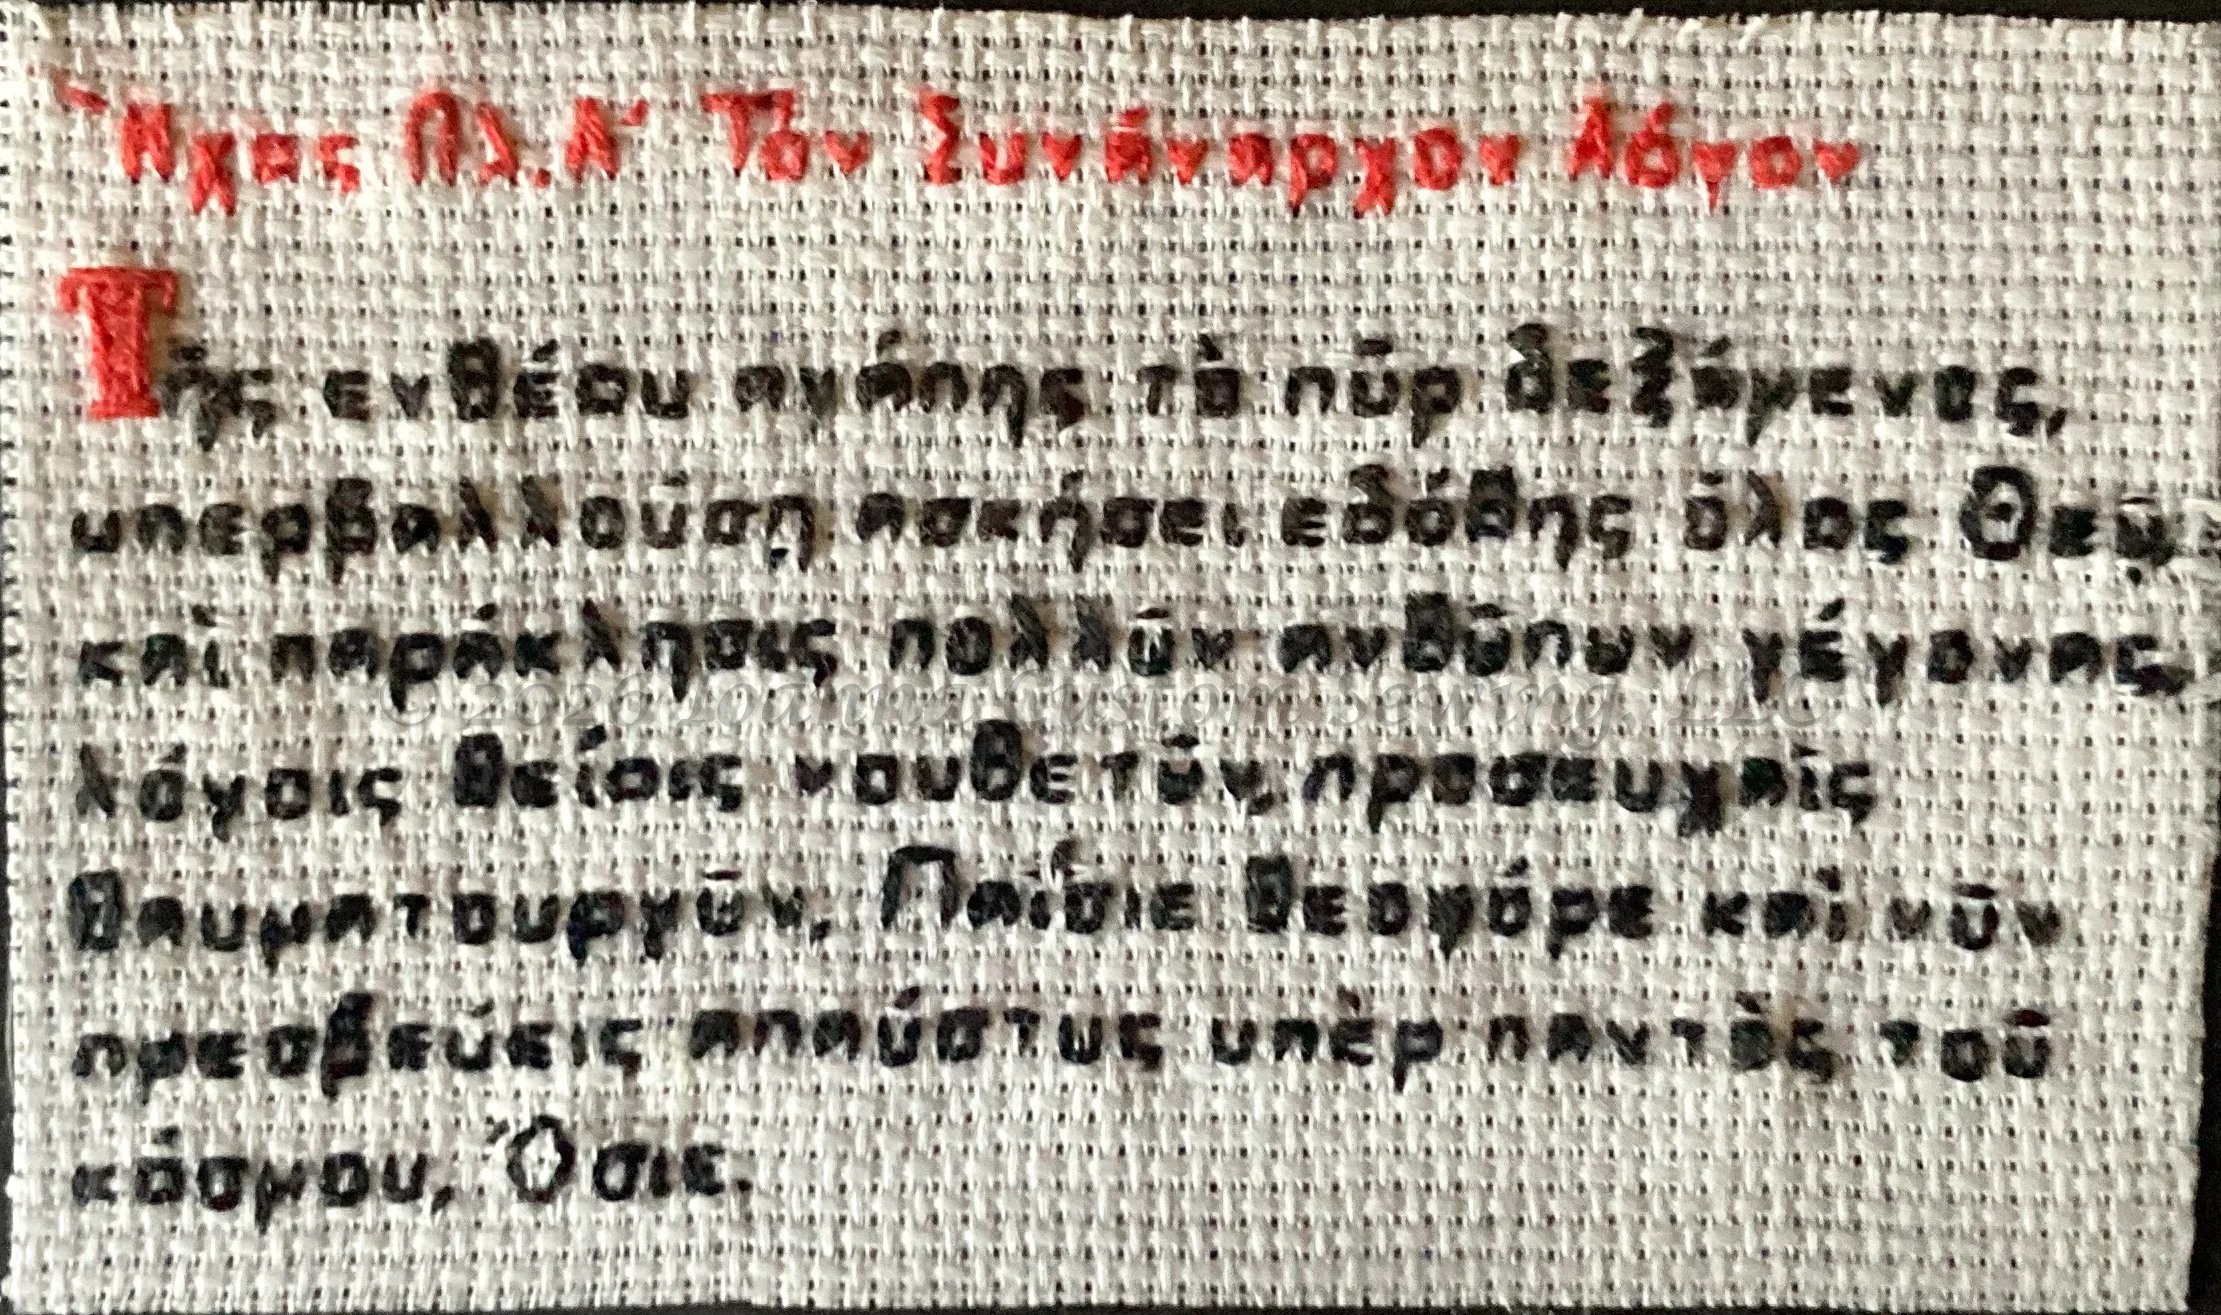 Ἦχος Πλ. Α´ Τὸν Συνάναρχον Λόγον
Τῆς ενθέου αγάπης τὸ πῦρ δεξάμενος,
υπερβαλλούσῃ ασκήσει εδόθης όλος Θεῷ
καὶ παράκλησις πολλῶν ανθώπων γέγονας,
λόγοις θείοις νουθετῶν, προσευχαῖς
θαυματουργῶν, Παΐσιε θεοφόρε καὶ νῦν
πρεσβεύεις απαύστως υπὲρ παντὸς τοῦ
κόσμου, Ὅσιε.
© 2020 Ioanna Custom Sewing, LLC